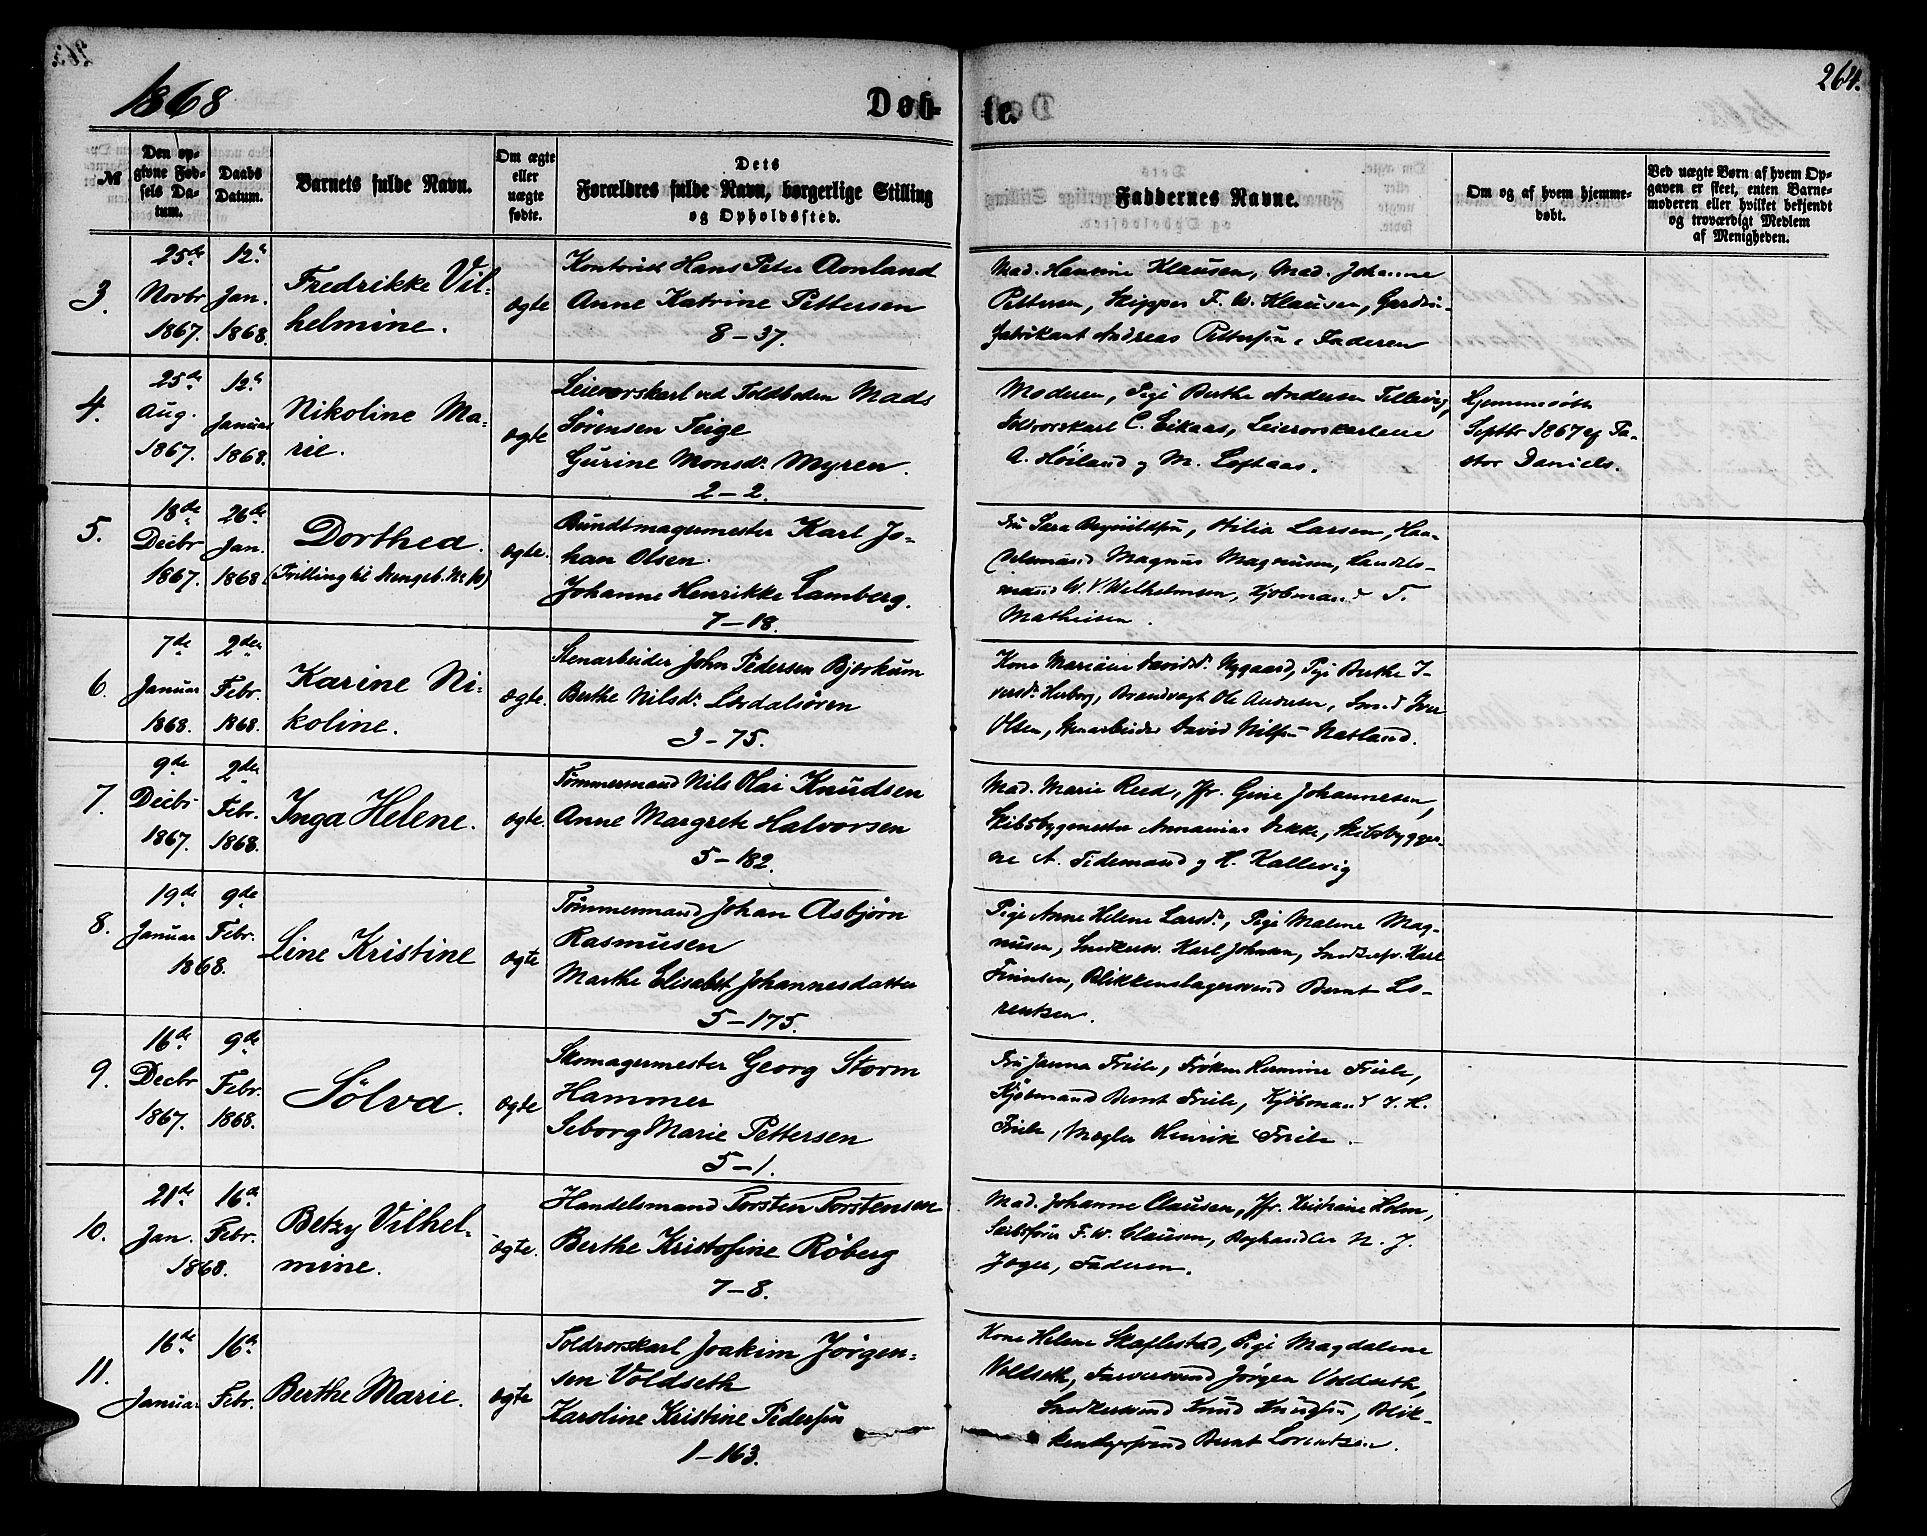 1868
Døb-
te.
264.
№
Den op-
givne Fød-
sels Da-
tum.
Daabs
Datum.
Barnets fulde Navn.
Om ægte
eller
uægte
fødte.
Dets
Forældres fulde Navn, borgerlige Stilling
og Opholdssted.
Faddernes Navne.
Om og af hvem hjemme-
døbt.
Ved uægte Børn af hvem Op-
gaven er skeet, enten Barne-
moderen eller hvilket bekjendt
og troværdigt Medlem
af Menigheden.
3.
25de
Novbr
1867.
12te
Jan.
1868.
Fredrikke Vil-
helmine.
ægte
Kontorist Hans Peter Aonland
Anne Katrine Pettersen
8-37.
Mad. Hansine Klausen, Mad. Johanne
Pettersen, Skipper F. W. Klausen,
fabrikant Andreas Pettersen, Faderen
4.
25de
Aug.
1867.
12te
Januar
1868.
Nikoline Ma-
rie.
ægte
Leierorskarl ved Toldboden Mads
Sørensen Teige
Gurine Monsdr. Myren.
2-2.
Moderen, Pige Berthe Andersen
C. Eikaas, Leierorskarlene
A. Høiland og M. Loftaas.
Hjemmedøbt
Septbr 1867 af Pa-
stor Daniels.
5.
18de
Decbr
1867.
26de
Jan.
1868
Dorthea.
(Tvilling til Drengeb. No 10)
ægte.
Bundtmagermester Karl Jo-
han Olsen.
Johanne Henrikke Lamberg.
7-18.
Fru Sara Larsen,
Magnus Magnusen, Handels-
mand W. V. Wilhelmsen, Kjøbmand T.
Mathiesen.
6.
7de
Januar
1868.
2den
Febr.
1868.
Karine Ni-
koline.
ægte.
Stenarbeider John Pedersen Bjørkum
Berthe Nilsdr. Lærdalsøren
3-75.
Kone Mariane Davidsdr. Nygaard, Pige Berthe I-
versdr. Herborg, Brandvagt Ole Andersen, Smed Iver
Olsen, Stenarbeider David Nilsen Natland.
7.
9de
Decbr
1867.
2den
Febr.
1868.
Inga Helene.
ægte.
Tømmermand Nils Olai Knudsen
Anne Margrete Halvorsen
5-182.
Mad. Marie Reed, Jfr. Gine Johannesen,
Skibsbygmester Annanias Dekke, Skibsbygger-
ne A. Tidemand og H. Kallevig
8.
19de
Januar
9de
Febr.
1868.
Line Kristine
ægte
Tømmermand Johan Asbjørn
Rasmusen
Marthe Elisabet Johannesdatter
5-175.
Pige Anne Helene Larsdr., Pige Malene Mag-
nusen, Snedkersv. Karl Johnsen, Karl
Finnsen, Blikkenslagersvend Bernt Lo-
rentsen.
9.
16de
Decbr
1867.
9de
Febr.
1868.
Sølva.
ægte
Skomagermester Georg Storm
Hammer
Seborg Marie Pettersen
5-1.
Fru Janna Friele, Frøken Hermine Friele,
Kjøbmand Bernt Friele, Kjøbmand J. H.
Friele, Mægler Henrik Friele.
10.
21de
Jan.
16de
Febr.
1868.
Betzy Vilhel-
mine.
ægte.
Handelsmand Torsten Torstensen
Berthe Kristofine Røberg
7-8.
Mad. Johanne Clausen, Jfr. Kristiane Holm,
Skibsfører F. W. Clausen, Boghandler N. J.
Jæger, Faderen.
11.
16de
Januar
16de
Febr.
Berthe Marie.
ægte
Toldrorskarl Joakim Jørgen-
sen Voldseth
Karoline Kristine Pedersen
1-163.
Kone Helene Skaflestad, Pige Magdalene
Voldseth, Farversvend Jørgen Voldseth,
Snedkersvend Knud Knudsen, Blik-
kenslagersvend Bernt Lorentsen.